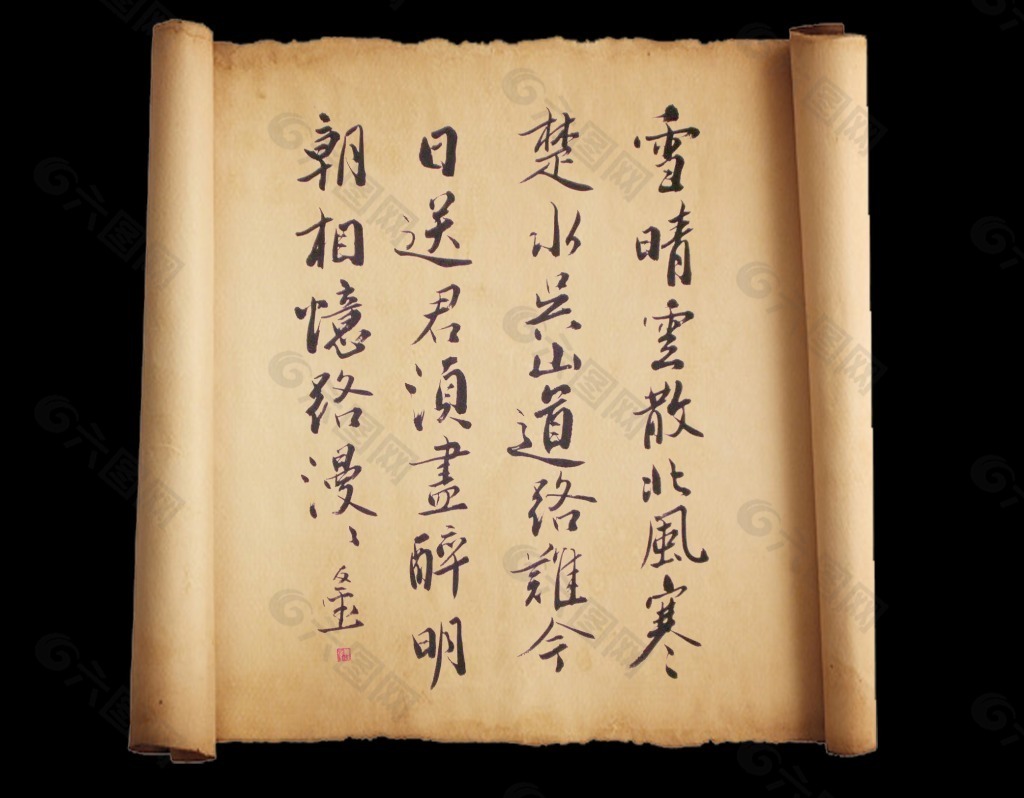 雪晴雲散北風寒
楚水吳山道路難今
日送君須盡醉明
朝相憶路漫〻
六图网